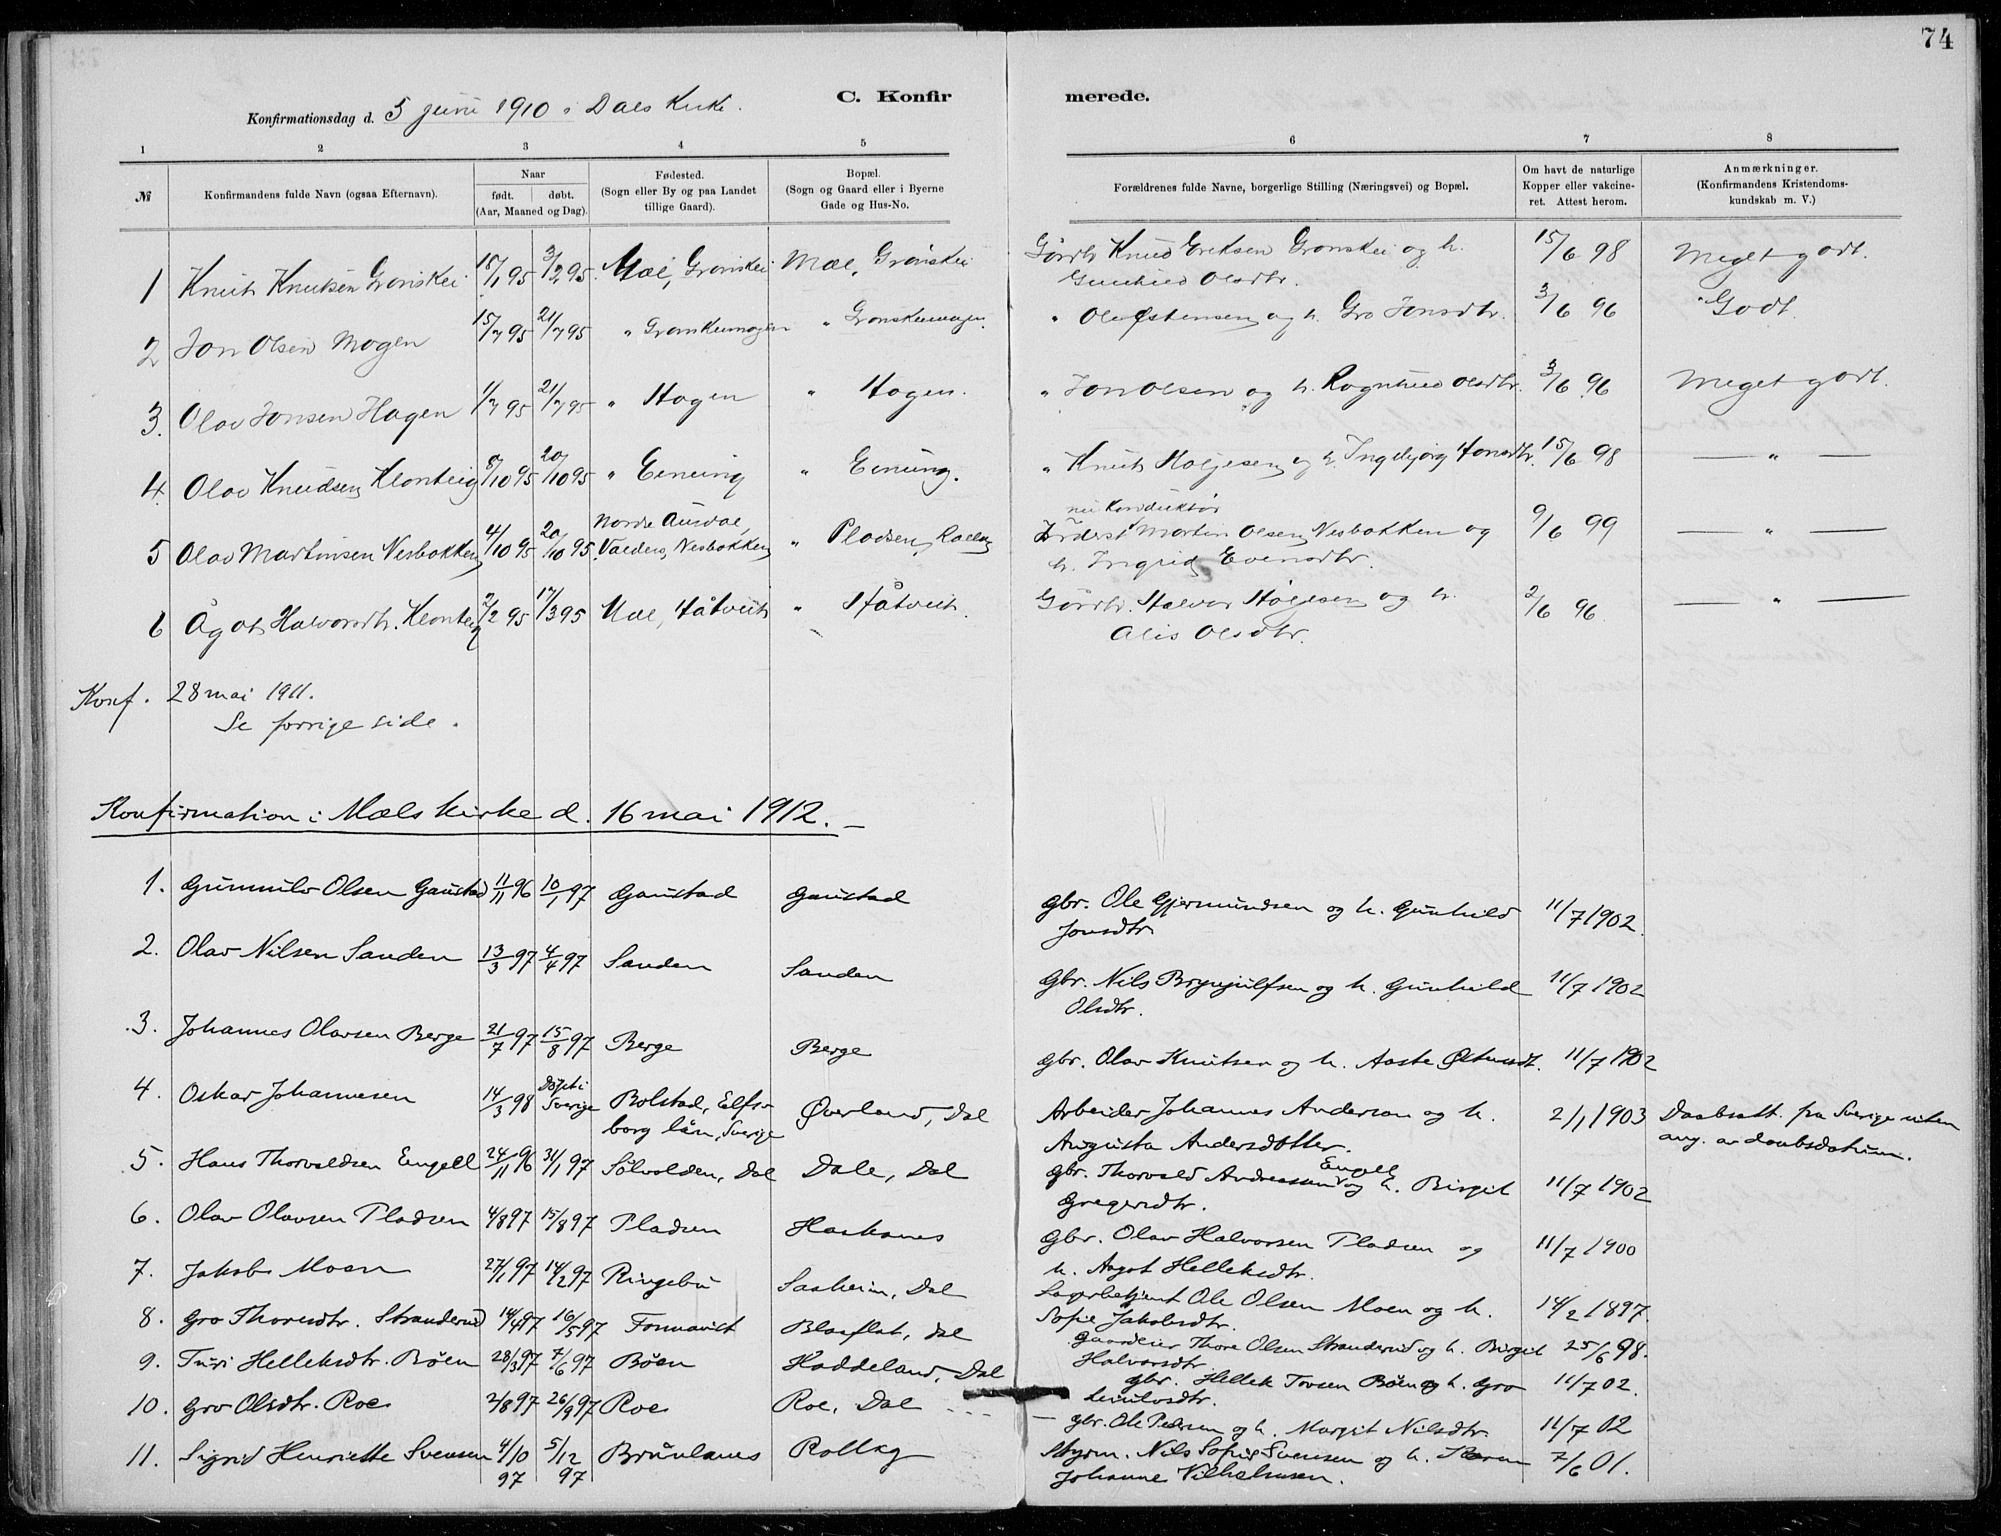 74
C. Konfirmerede.
Konfirmationsdag d. 5 juni 1910 i Dals Kirke.
1 2 3 4 5 6 7 8
№ Konfirmandens fulde Navn (ogsaa Efternavn). Naar født. døbt. (Aar, Maaned og Dag). Fødested. (Sogn eller By og paa Landet tillige Gaard). Bopæl. (Sogn og Gaard eller i Byerne Gade og Hus-No. Forældrenes fulde Navne, borgerlige Stilling (Næringsvei) og Bopæl. Om havt de naturlige Kopper eller vakcineret. Attest herom. Anmærkninger. (Konfirmandens Kristendomskundskab m. V.)
1 Knut Knutsen Grønskei 18/1 95 3/2 95 Mæl, Grønskei Mæl, Grønskei Knud Eriksen Grønskei og h. 15/6 98 Meget godt.
Gunhild Olsdtr.
2 Jon Olsen Mogen 15/7 95 21/7 95 " Grønskeimogen " Grønskeimogen. " Ole Østensen og h. Gro Jonsdtr. 3/6 96 Godt.
3. Olav Jonsen Hagen 1/7 95 21/7 95 " Hagen " Hagen. " Jon Olsen og h. Ragnhild Olsdtr. 3/6 96 Meget godt.
4 Olav Knudsen Klonteig 8/10 95 20/10 95 " Einung " Einung. " Knut Høljesen og h. Ingebjørg Jonsdtr. 15/6 98 — " —
nu Konduktør
5 Olav Martinsen Nesbakken 4/10 95 20/10 95 Nordre Aurdal, Valders, Nesbakken " Pladsen, Martin Olsen Nesbakken og 9/6 99 — " —
h. Ingrid Evensdtr.
6 Ågot Halvorsdtr. Klonteig 2/2 95 17/3 95 Mæl, Håtveit " Håtveit. Halvor Høljesen og h. 2/6 96 — " —
Olsdtr.
Konf. 28 mai 1911.
Se forrige side.
Konfirmation i Mæls kirke d. 16 mai 1912. —
1. Gunnulv Olsen Gaustad 11/11 96 10/1 97 Gaustad Gaustad gbr. Ole Gjermundsen og h. Gunhild 11/7 1902.
Jonsdtr.
2. Olav Nilsen Sanden 13/3 97 4/4 97 Sanden Sanden gbr. Nils Brynjulfsen og h. Gunhild 11/7 1902
Olsdtr.
3. Johannes Olavsen Berge 21/7 97 15/8 97 Berge Berge gbr. Olav Knutsen og h. Aaste Østensdt. 11/7 1902
4. Oskar Johannesen 14/3 98 Døpt i Sverige Bolstad, Elfsborg län, Sverige Øverland, Dal Arbeider Johannes Anderson og h. 2/1 1903 Daabsatt. fra Sverige uten
Augusta Andersdotter. ang. av daabsdatum.
5. Hans Thorvaldsen Engell 24/11 96 31/1 97 Sølvolden, Dal Dale, Dal gbr. Thorvald Andreassen Engell og h. Birgit 11/7 1902
Gregersdtr.
6. Olav Olavsen Pladsen 4/8 97 15/8 97 Pladsen Haakanes gbr. Olav Halvorsen Pladsen og 11/7 1900
h. Aagot Helleksdtr.
7. Jakob Moen 27/1 97 14/2 97 Ringebu Saaheim, Dal Lagerbetjent Ole Olsen Moen og h. 14/2 1897.
Sofie Jakobsdtr.
8. Gro Thoresdtr. Stranderud 14/4 97 16/5 97 Blaaflat, Dal Gaardeier Thore Olsen Stranderud og h. Birgit 25/6 98.
Halvorsdtr.
9. Turi Helleksdtr. Bøen 28/3 97 7/6 97 Bøen Haddeland, Dal gbr. Hellek Tovsen Bøen og h. Gro 11/7 02.
10. Gro Olsdtr. Roe 2/8 97 26/9 97 Roe Roe, Dal gbr. Ole Pedersen og h. Margit Nilsdtr. 11/7 02
11. Sigrid Henriette Svensen 4/10 97 5/12 97 Brunlanes Rollag Styrm. Nils Sofus Svensen og h. Karen 7/6 01.
Johanne Vilhelmsen.